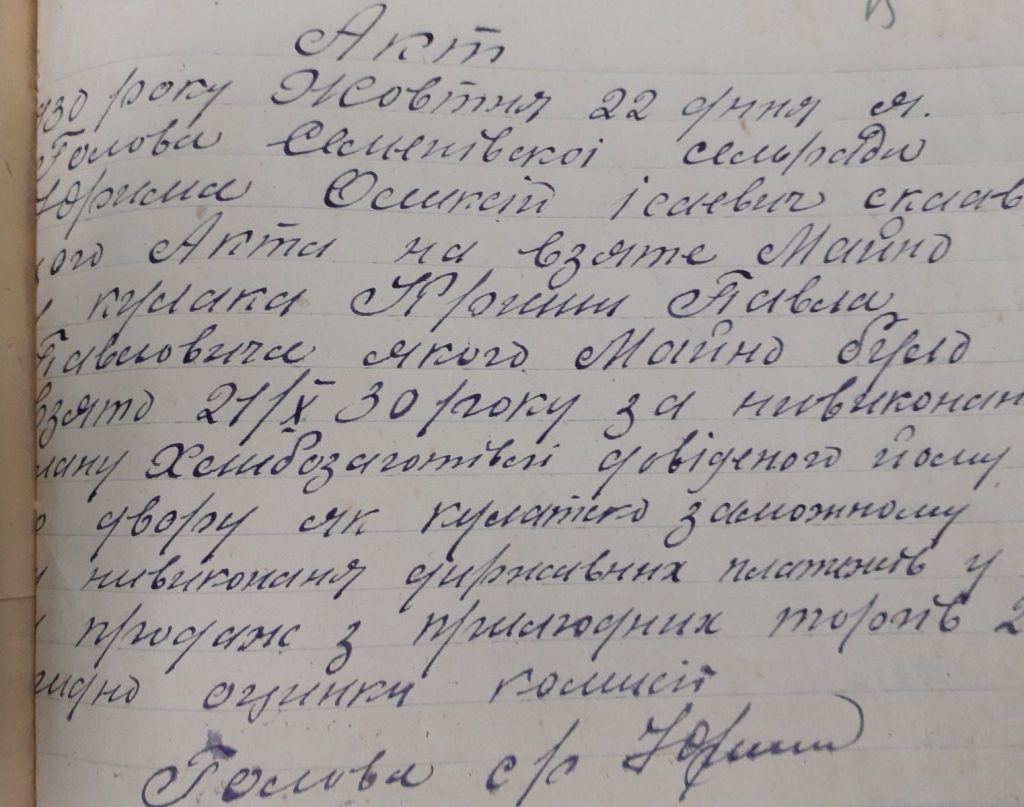 Акт
930 року Жовтня 22 дння я.
Голова Семенівскоі сельради
Юрима Олексій ісаевич склав
кого Акта на взяте Майно
у кулака Криши Павла
Павловича якого Майно було
взято 21/X 30 року за нивиконан
лану Хлибозаготівлі довіденого йому
о двору як кулатско заможному
нивиконаня диржавних платежів у
продаж з прилюдних торгів 2
гидно оцинки комисіі
Голова с/р